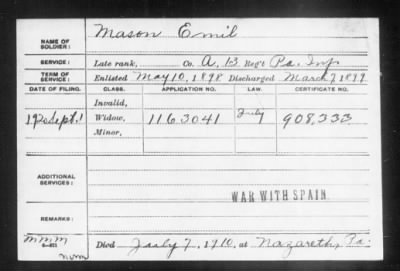 NAME OF SOLDIER: Mason Emil
SERVICE: Late rank, Co. A, 13 Reg't Pa. Inf.
TERM OF SERVICE: Enlisted May 10, 1898 Discharged March 7, 1899
DATE OF FILING. CLASS. APPLICATION NO. LAW. CERTIFICATE NO.
Invalid,
1920 Sept. 1 Widow, 1163041 July 908,333
Minor,
ADDITIONAL SERVICES:
WAR WITH SPAIN
REMARKS:
Died July 7, 1910, at Nazareth, Pa.